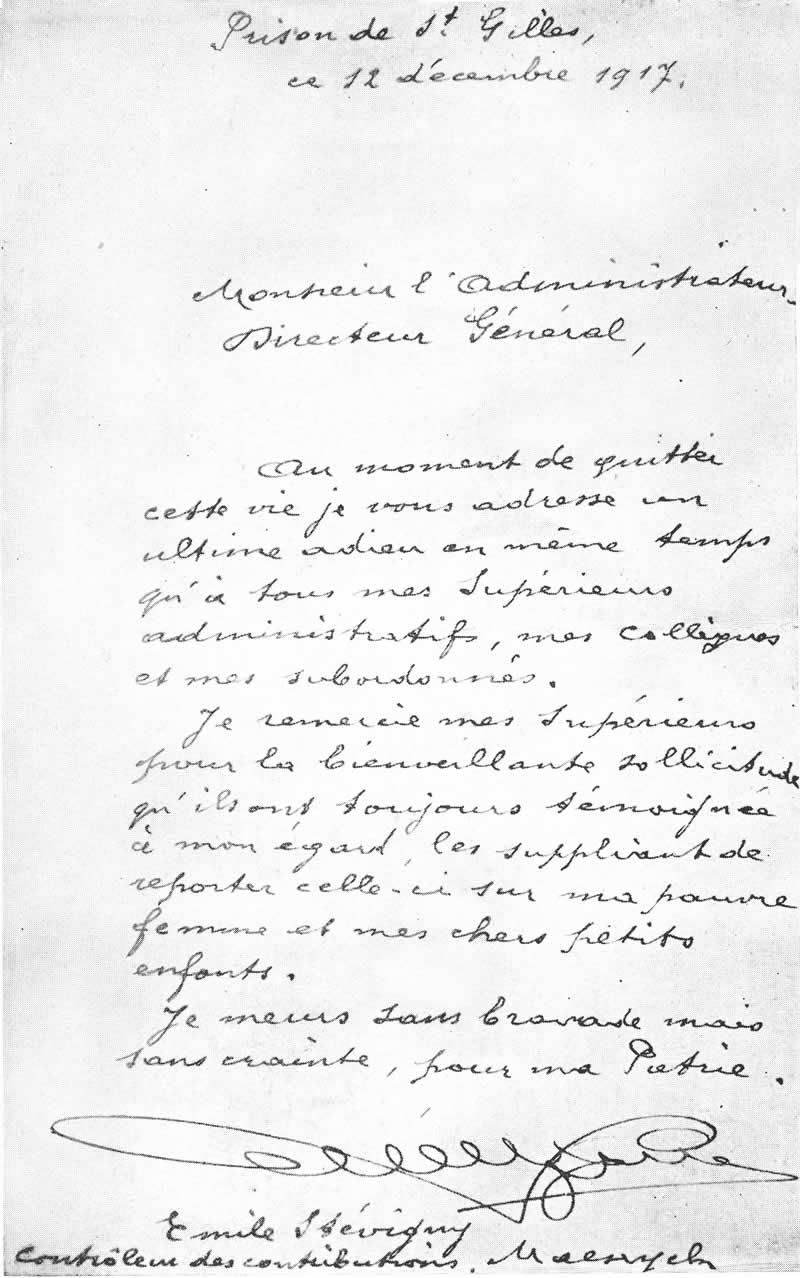 Prison de St Gilles,
ce 12 décembre 1917.
Monsieur l'Administrateur-
Directeur Général,
Au moment de quitter
cette vie je vous adresse un
ultime adieu en même temps
qu'à tous mes Supérieurs
administratifs, mes collègues
et mes subordonnés.
Je remercie mes Supérieurs
pour la bienveillante sollicitude
qu'ils ont toujours témoignée
à mon égard, les suppliant de
reporter celle-ci sur ma pauvre
femme et mes chers petits
enfants.
Je meurs sans bravade mais
sans crainte, pour ma Patrie.
Emile Stévigny
Contrôleur des contributions.